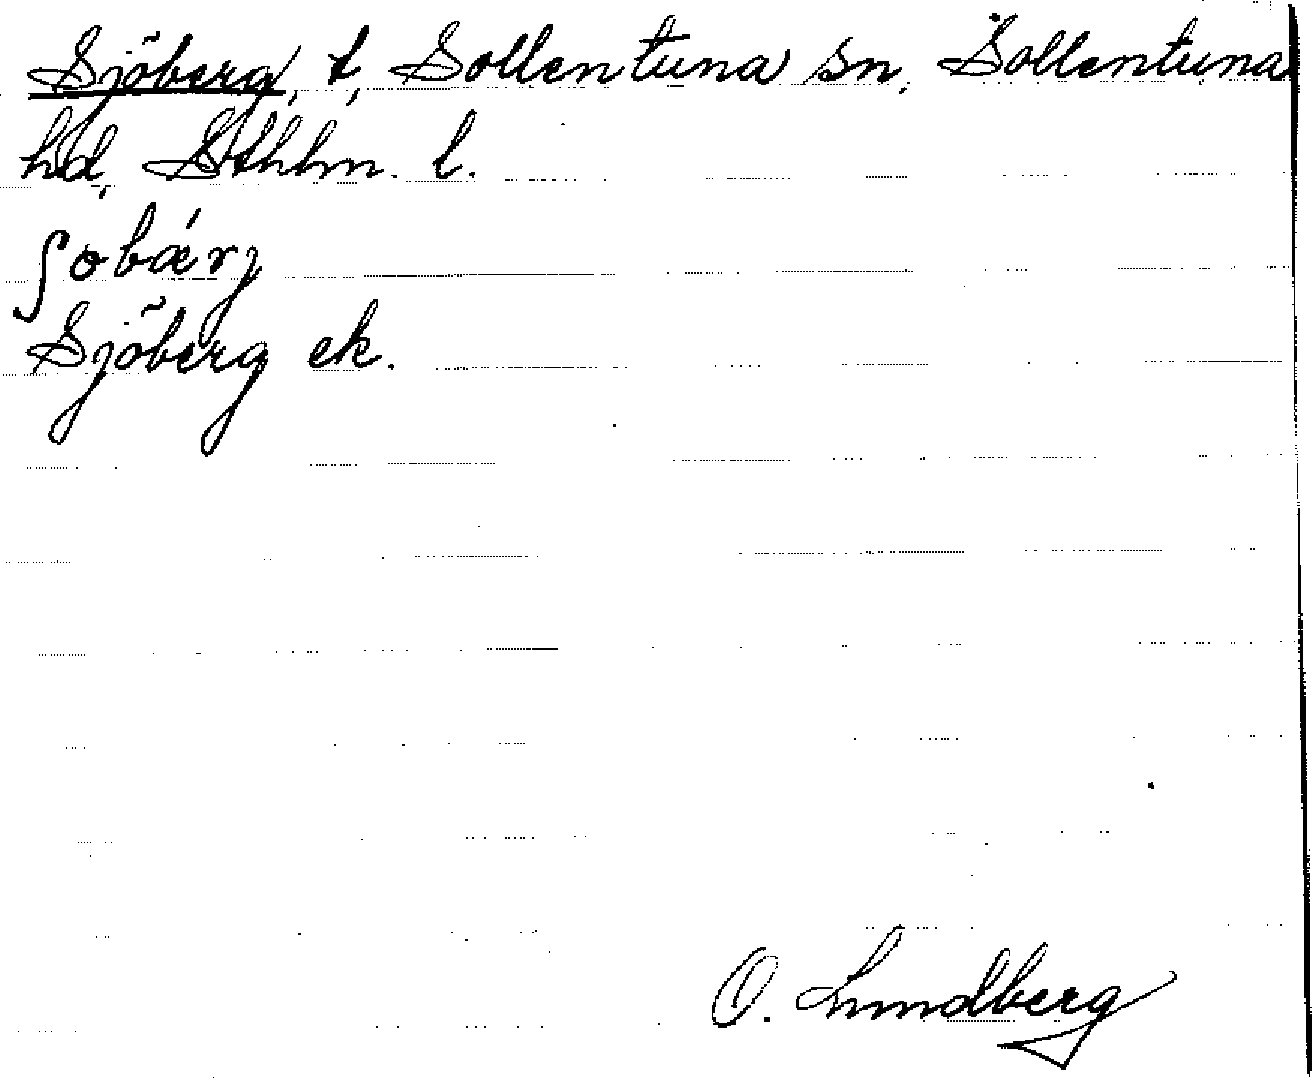 Sjöberg, t, Sollentuna sn, Sollentuna
hd, Sthlm. l.
ʃobærj
Sjöberg ek.
O. Lundberg